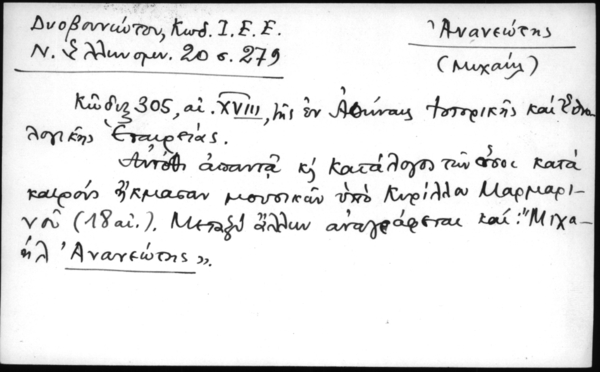 Δυοβουνιώτου, Κωδ. Ι. Ε. Ε.
Ν. Ἑλληνομν. 20 σ. 279
Ἀνανεώτης
(Μιχαήλ)
Κῶδιξ 305, αἰ. XVIII, τῆς ἐν Ἀθήναις Ἱστορικῆς καὶ Ἐθνο-
λογικῆς Ἑταιρείας.
Αὐτόθι ἀπαντᾷ κ̣ κατάλογος τῶν ὅσοι κατὰ
καιροὺς ἤκμασαν μουσικῶν ὑπὸ Κυρίλλου Μαρμαρι-
νοῦ (18 αἰ.). Μεταξὺ ἄλλων ἀναγράφεται καί: "Μιχα-
ὴλ Ἀνανεώτης».